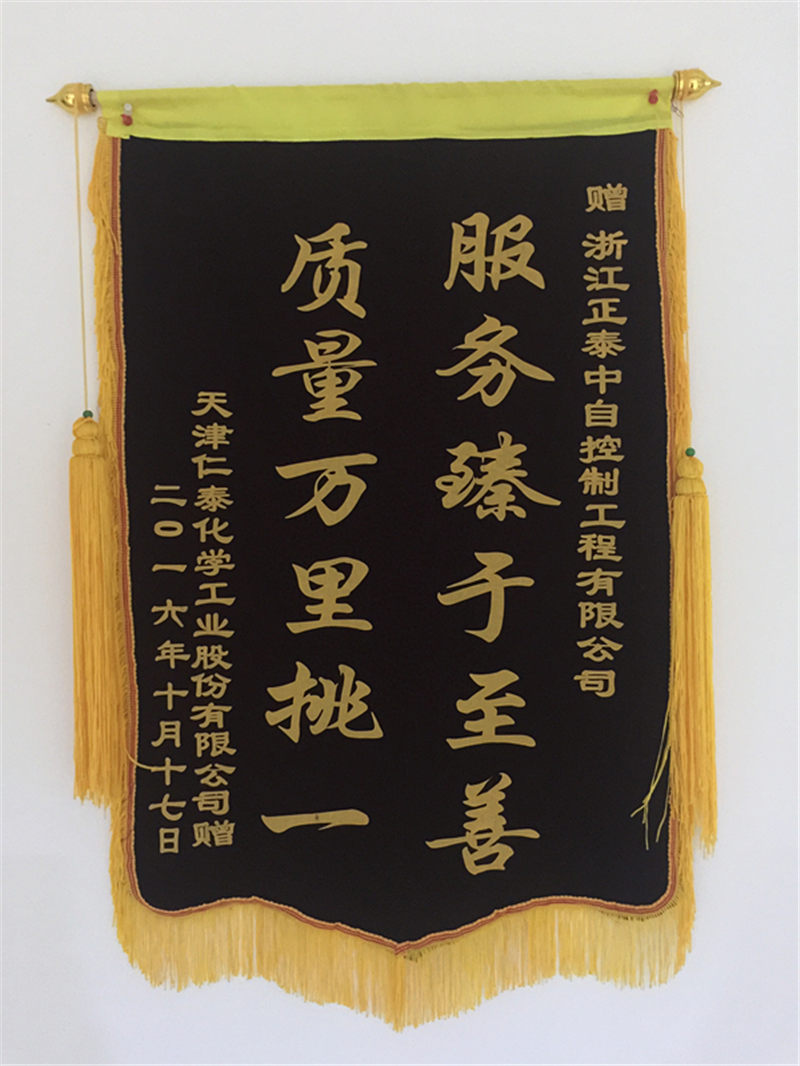 赠 浙江正泰中自控制工程有限公司
服务臻于至善
质量万里挑一
天津仁泰化学工业股份有限公司赠
二〇一六年十月十七日